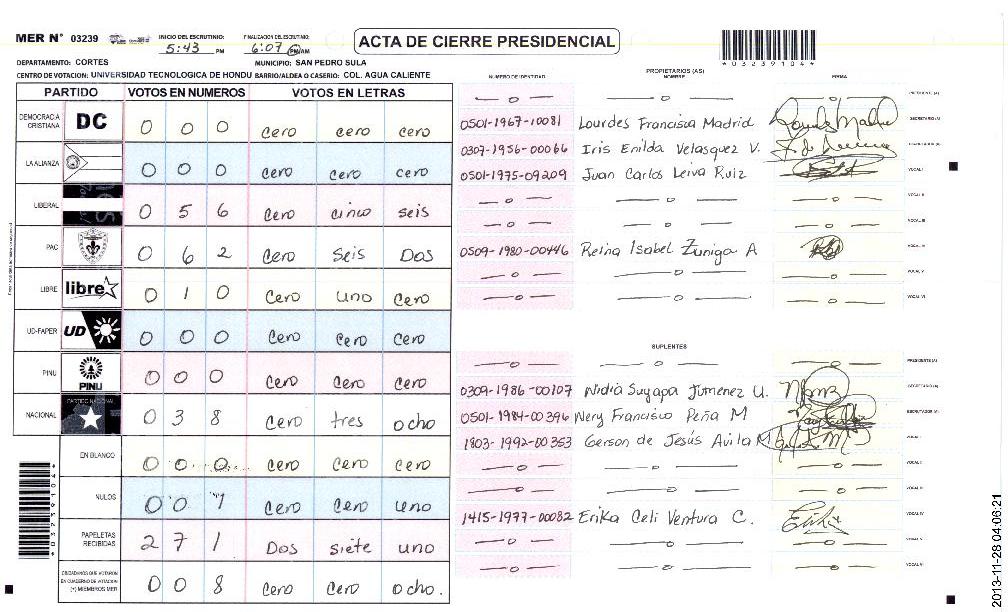 MER N° 03239
INICIO DEL ESCRUTINIO: 5:43 PM
FINALIZACION DEL ESCRUTINIO: 6:07 PM/AM
ACTA DE CIERRE PRESIDENCIAL
*0323910 4*
DEPARTAMENTO: CORTES MUNICIPIO: SAN PEDRO SULA
CENTRO DE VOTACION: UNIVERSIDAD TECNOLOGICA DE HONDU BARRIO/ALDEA O CASERIO: COL. AGUA CALIENTE
PARTIDO VOTOS EN NUMEROS VOTOS EN LETRAS
DEMOCRACIA CRISTIANA DC 0 0 0 cero cero cero
LA ALIANZA 0 0 0 cero cero cero
LIBERAL 0 5 6 cero cinco seis
PAC 0 6 2 cero seis Dos
LIBRE libre 0 1 0 cero uno cero
UD-FAPER UD 0 0 0 cero cero cero
PINU PINU 0 0 0 cero cero cero
NACIONAL PARTIDO NACIONAL 0 3 8 cero tres ocho
EN BLANCO 0 0 0 cero cero cero
NULOS 0 0 1 cero cero uno
PAPELETAS RECIBIDAS 2 7 1 Dos siete uno
CIUDADANOS QUE VOTARON EN CUADERNO DE VOTACION (+) MIEMBROS MER 0 0 8 cero cero ocho.
PROPIETARIOS (AS)
NUMERO DE IDENTIDAD NOMBRE FIRMA
— 0 — — 0 — — 0 — PRESIDENTE (A)
0501-1967-10081 Lourdes Francisca Madrid SECRETARIO (A)
0307-1956-00066 Iris Enilda Velasquez V. ESCRUTADOR (A)
0501-1975-09209 Juan Carlos Leiva Ruiz VOCAL I
— 0 — — 0 — — 0 — VOCAL II
— 0 — — 0 — — 0 — VOCAL III
0509-1980-00446 Reina Isabel Zuniga A VOCAL IV
— 0 — — 0 — — 0 — VOCAL V
— 0 — — 0 — — 0 — VOCAL VI
SUPLENTES
— 0 — — 0 — — 0 — PRESIDENTE (A)
0309-1986-00107 Nidia Suyapa Jimenez U. SECRETARIO (A)
0501-1984-00396 Nery Francisco Peña M ESCRUTADOR (A)
1803-1992-00353 Gerson de Jesús Avila M VOCAL I
— 0 — — 0 — — 0 — VOCAL II
— 0 — — 0 — — 0 — VOCAL III
1415-1977-00082 Erika Celi Ventura C. VOCAL IV
— 0 — — 0 — — 0 — VOCAL V
— 0 — — 0 — — 0 — VOCAL VI
2013-11-28 04:06:21